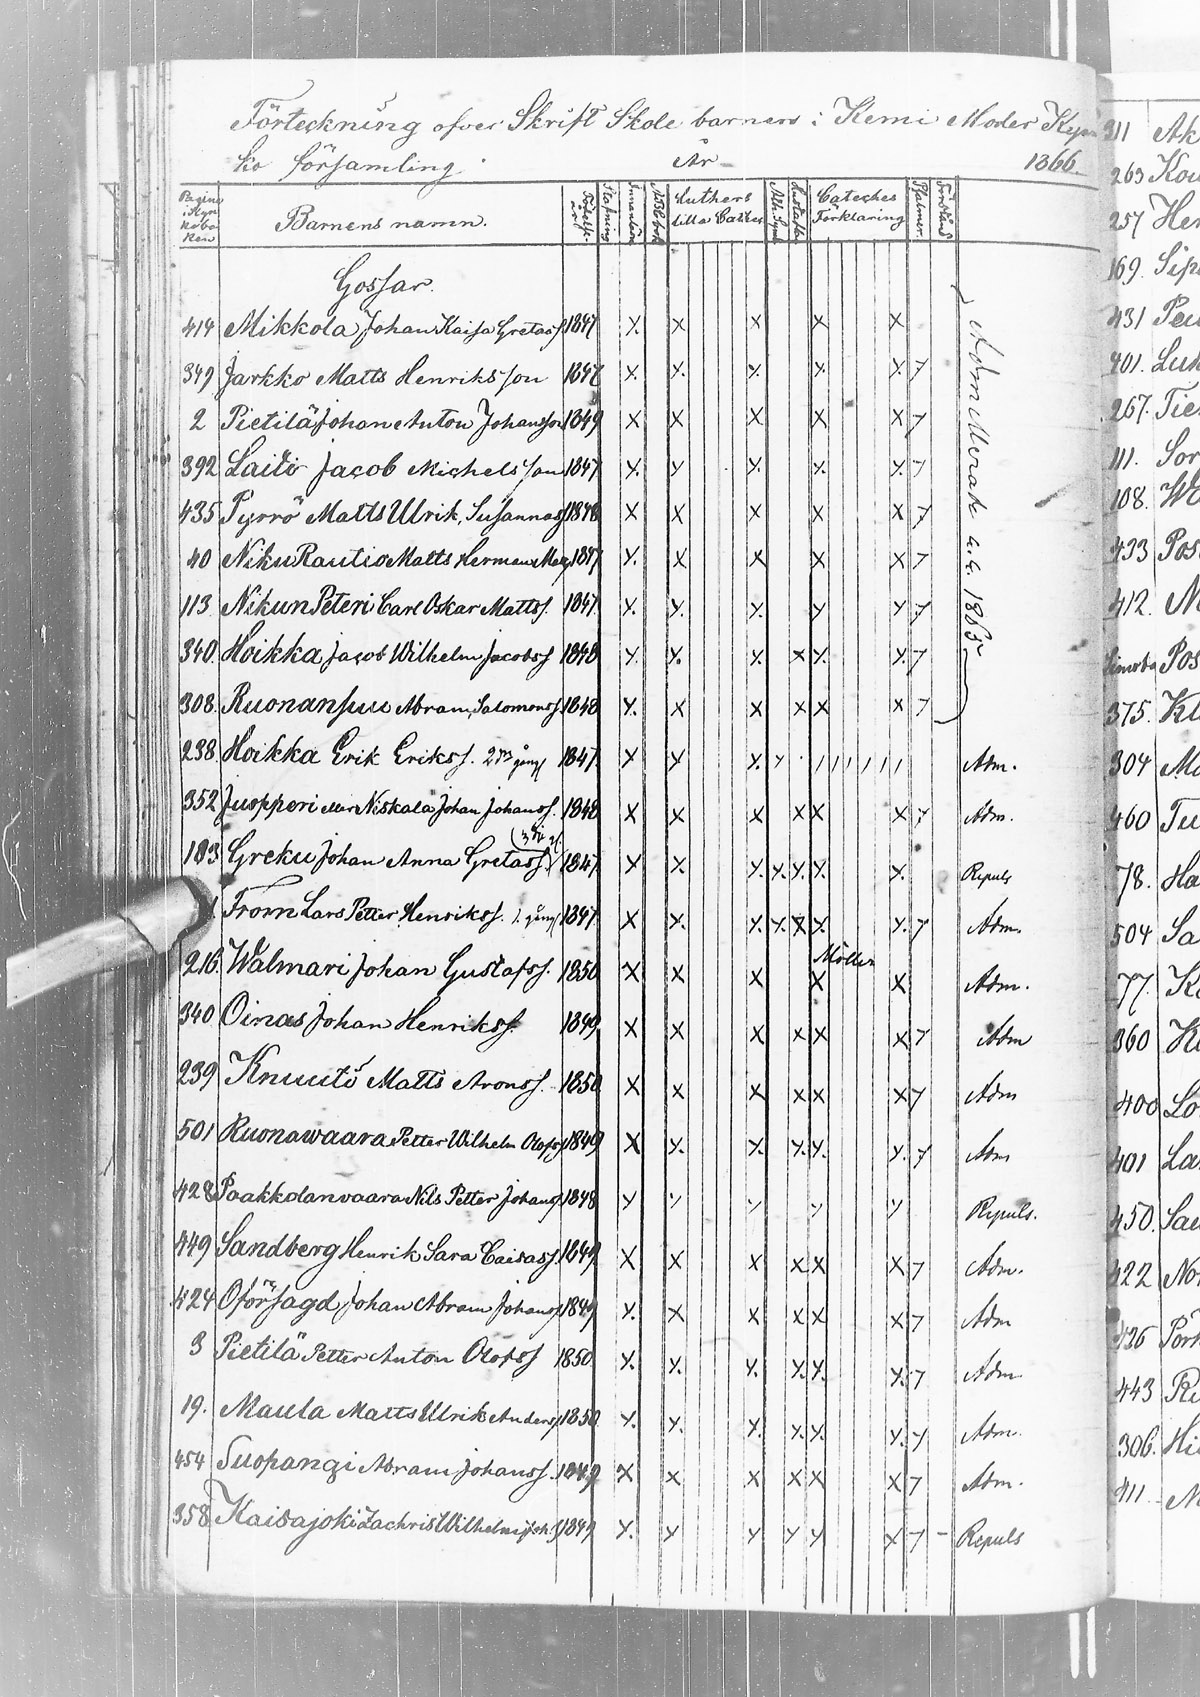 Förteckning öfver Skrift Skole barnen i Kemi Moder Kyr
ko församling År 1866.
Pagina i Kyrkoboken Barnens namn. Födelse-år Stafning Innanläsn. ABC bok Luthers lilla Catches Ath. Symb. Hustafla Cateches Förklaring Psalmer Förstånd
Gossar.
414 Mikkola Johan Kaisa Gretas s. 1847 X X X X X
349 Jarkko Matts Henriksson 1847 X. X. X. X X 7
2 Pietilä Johan Anton Johansson 1849 X X X X X 7
392 Laiti Jacob Michelsson 1847 X. X X. X. X. 7
435 Pyrrö Matts Ulrik, Susannas s 1848 X X X X X 7
40 Niku Rautio Matts Herman 1847 X. X X X X 7
113 Nikun Peteri Carl Oskar Matts s. 1847. X. X. X. X X 7
340 Hoikka Jacob Wilhelm Jacobs s 1848 X. X. X. X X. X. 7
308. Ruonanpuu Abram Salomons s. 1848 X. X X X X X 7
Adm 1865
238 Hoikka Erik Eriks s. 2dra gång 1847. X X X. X / / / / / / Adm.
352 Juopperi Niskala Johan Johans s. 1848 X X X X X X 7 Adm.
(3die
183 Greku Johan Anna Gretas s. 1847 X X. X. X. X. X. X. Repuls
From Lars Petter Henriks s. gång 1847. X X. X. X. X X. X. 7 Adm.
216. Walmari Johan Gustafs s. 1850 X X X X X Adm.
340 Oinas Johan Henriks s. 1849 X X X X X X 7 Adm
239 Knuuti Matts Arons s. 1850 X X X X X X 7 Adm
501 Ruonawaara Petter Wilhelm Olofs s 1849 X X. X. X. X. X. 7 Adm
428 Paakkolanvaara Nils Petter Johans s 1848 X X X X X Repuls.
449 Sandberg Henrik Sara Caisas s. 1849 X X X X X X 7 Adm.
424 Oförsagd Johan Abram Johans s 1849 X. X X X X X 7 Adm
3 Pietilä Petter Anton Olofs s 1850 X. X. X. X. X. X. 7 Adm
19. Maula Matts Ulrik Anders s 1850. X. X. X. X. X. X. 7 Adm.
454 Suopangi Abram Johans s. 1849 X X X X X X 7 Adm.
358 Kaisajoki Zachris Wilhelm 1849 X. X X X X X 7 – Repuls
311 Ak
263 Kou
257 Her
169. Sip
431 Peu
401. Luk
267. Tie
111. Sor
108. Wo
433 Pos
412. N
Pos
375. Kl
304 Ma
460 Tu
78. Ha
504 Sa
77. Ka
360 He
400 Lo
401 La
450. Sau
422 No
436 Pör
443 Ri
306. Hi
411 N